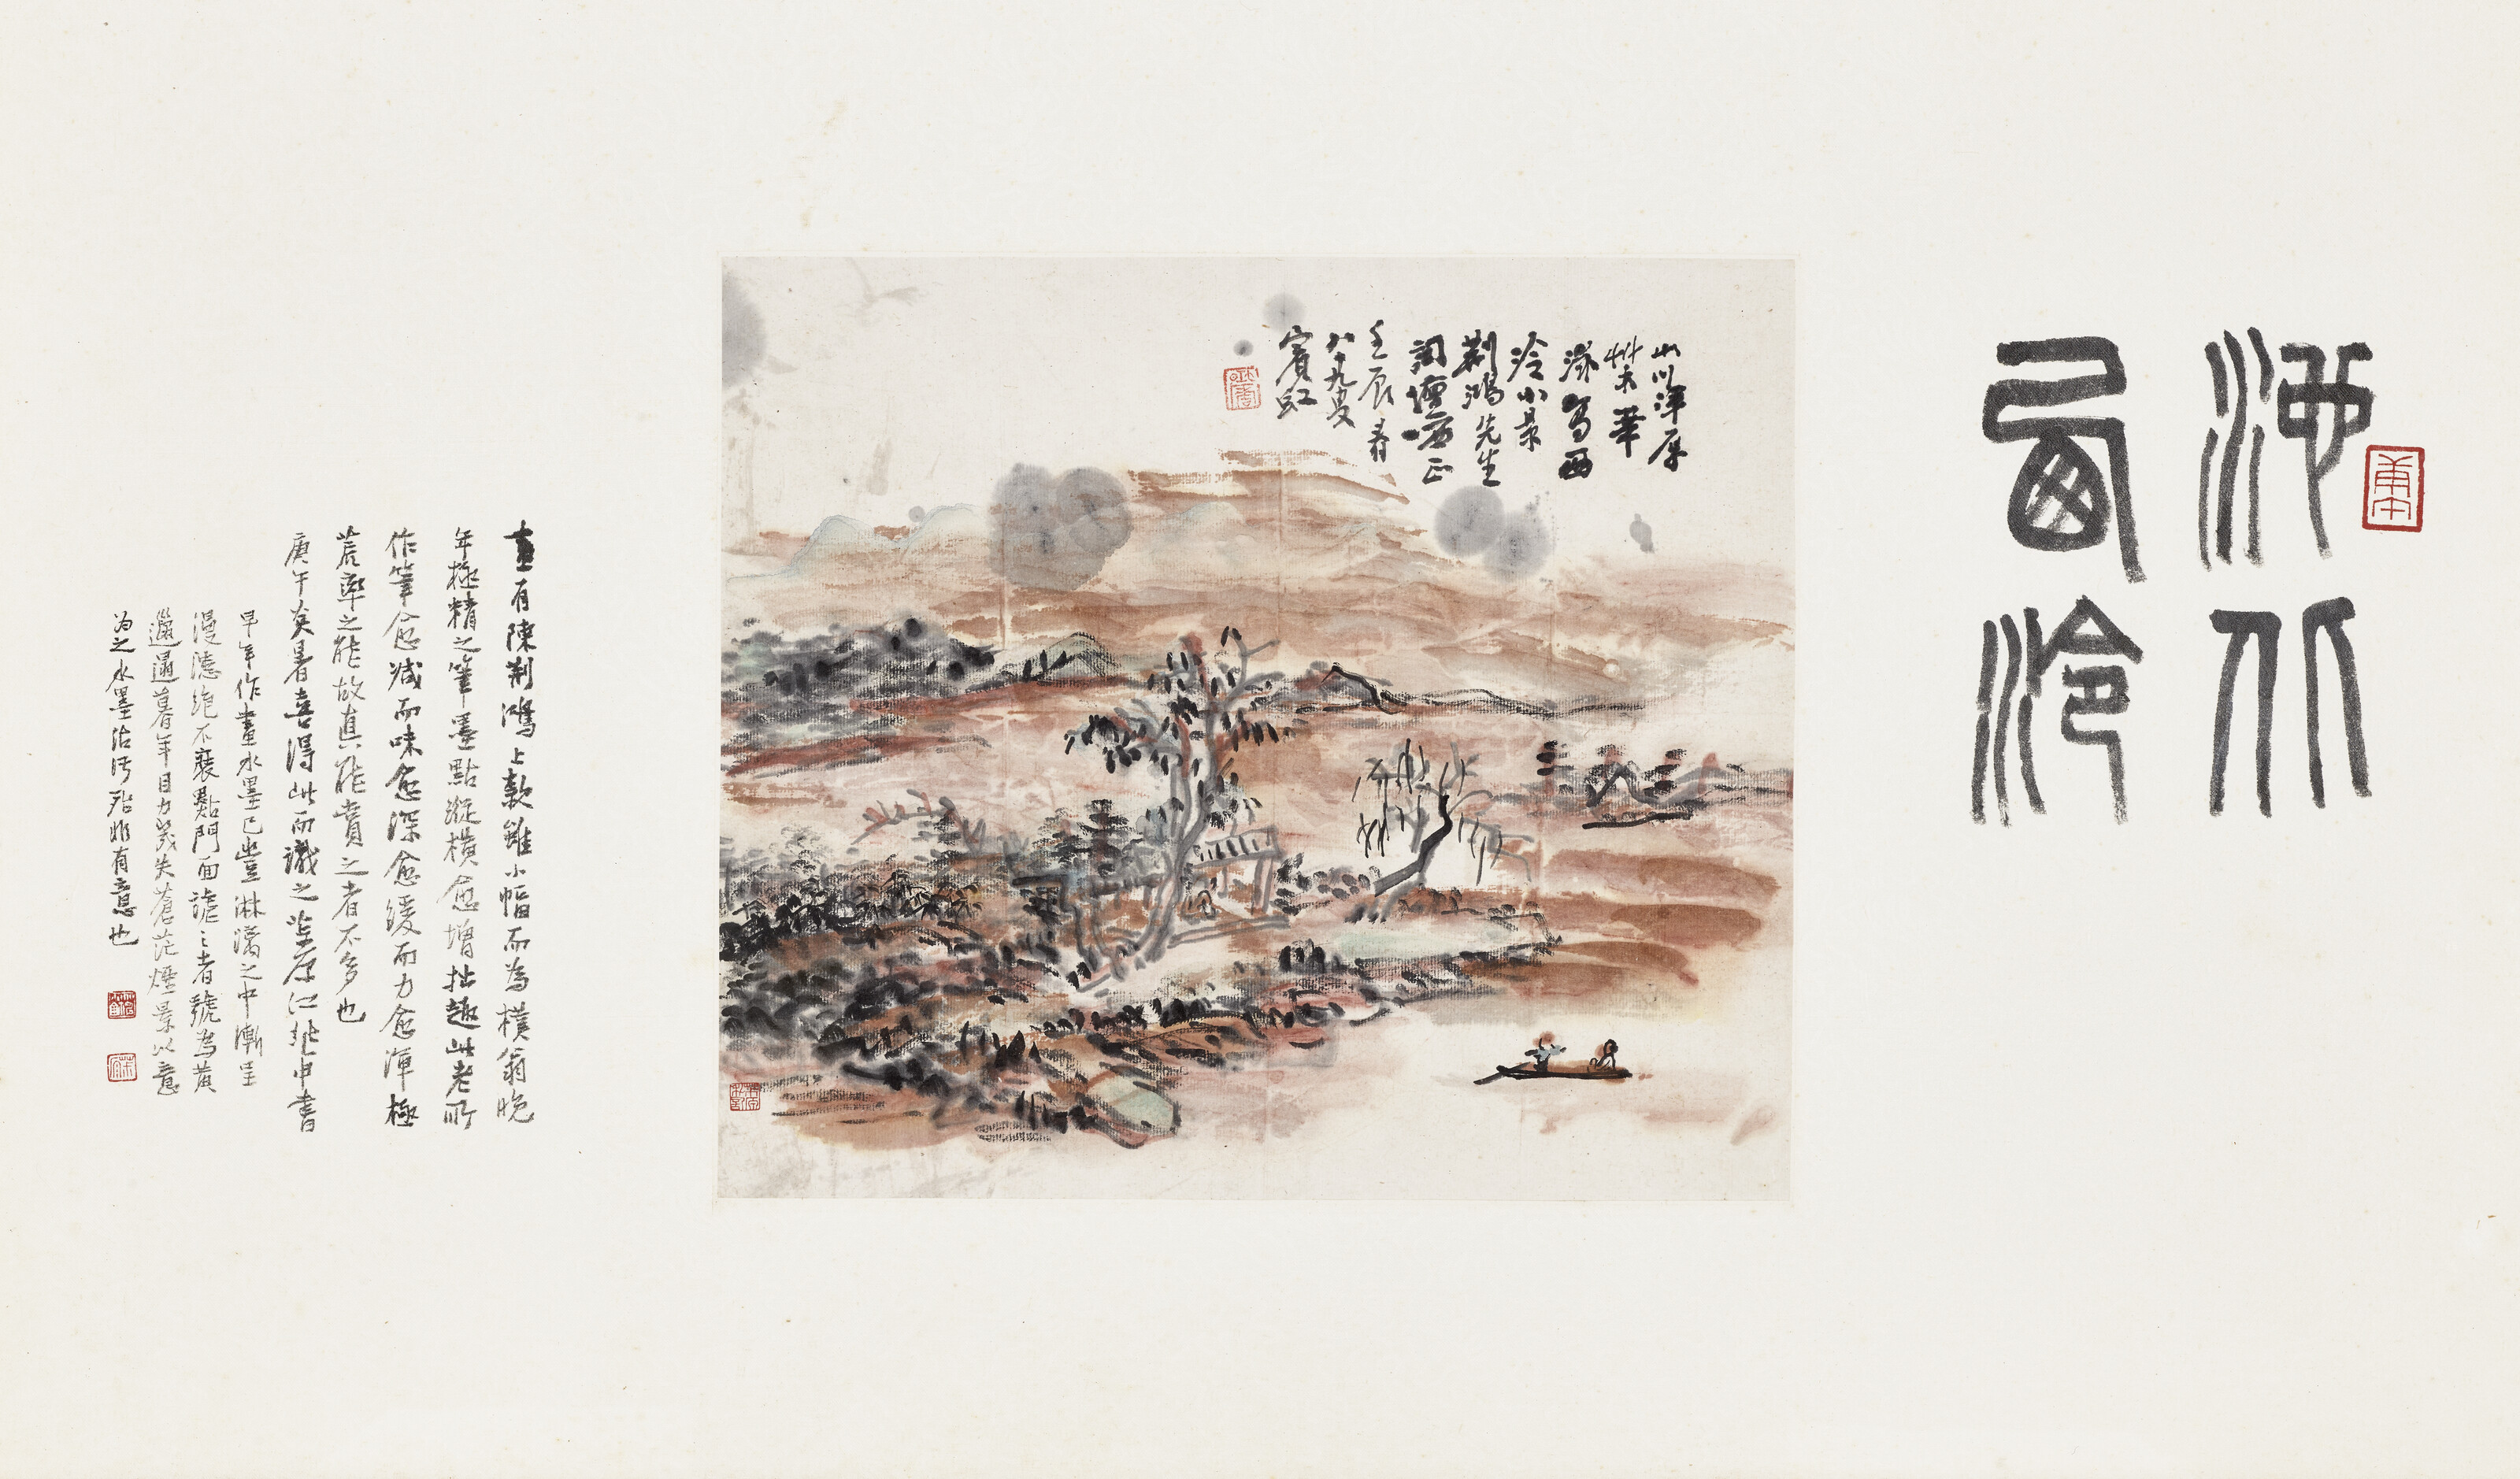 湖山
西泠
山川渾厚
艸木華
滋寫西
泠小景
荆鴻先生
詞壇哂正
壬辰春
八十九叟
賓虹
畫有陳荆鴻上款雖小幅而為樸翁晚
年極精之筆墨點縱橫愈增拙趣此老所
作筆愈減而味愈深愈緩而力愈渾極
荒率之能故真能賞之者不多也
庚午炎暑喜得此而識之
早年作畫水墨已豐淋漓之中漸呈
漫漶絶不裝點門面詭之者號為黃
邋遢暮年目力幾失蒼茫煙景以意
為之水墨沾污殆非有意也